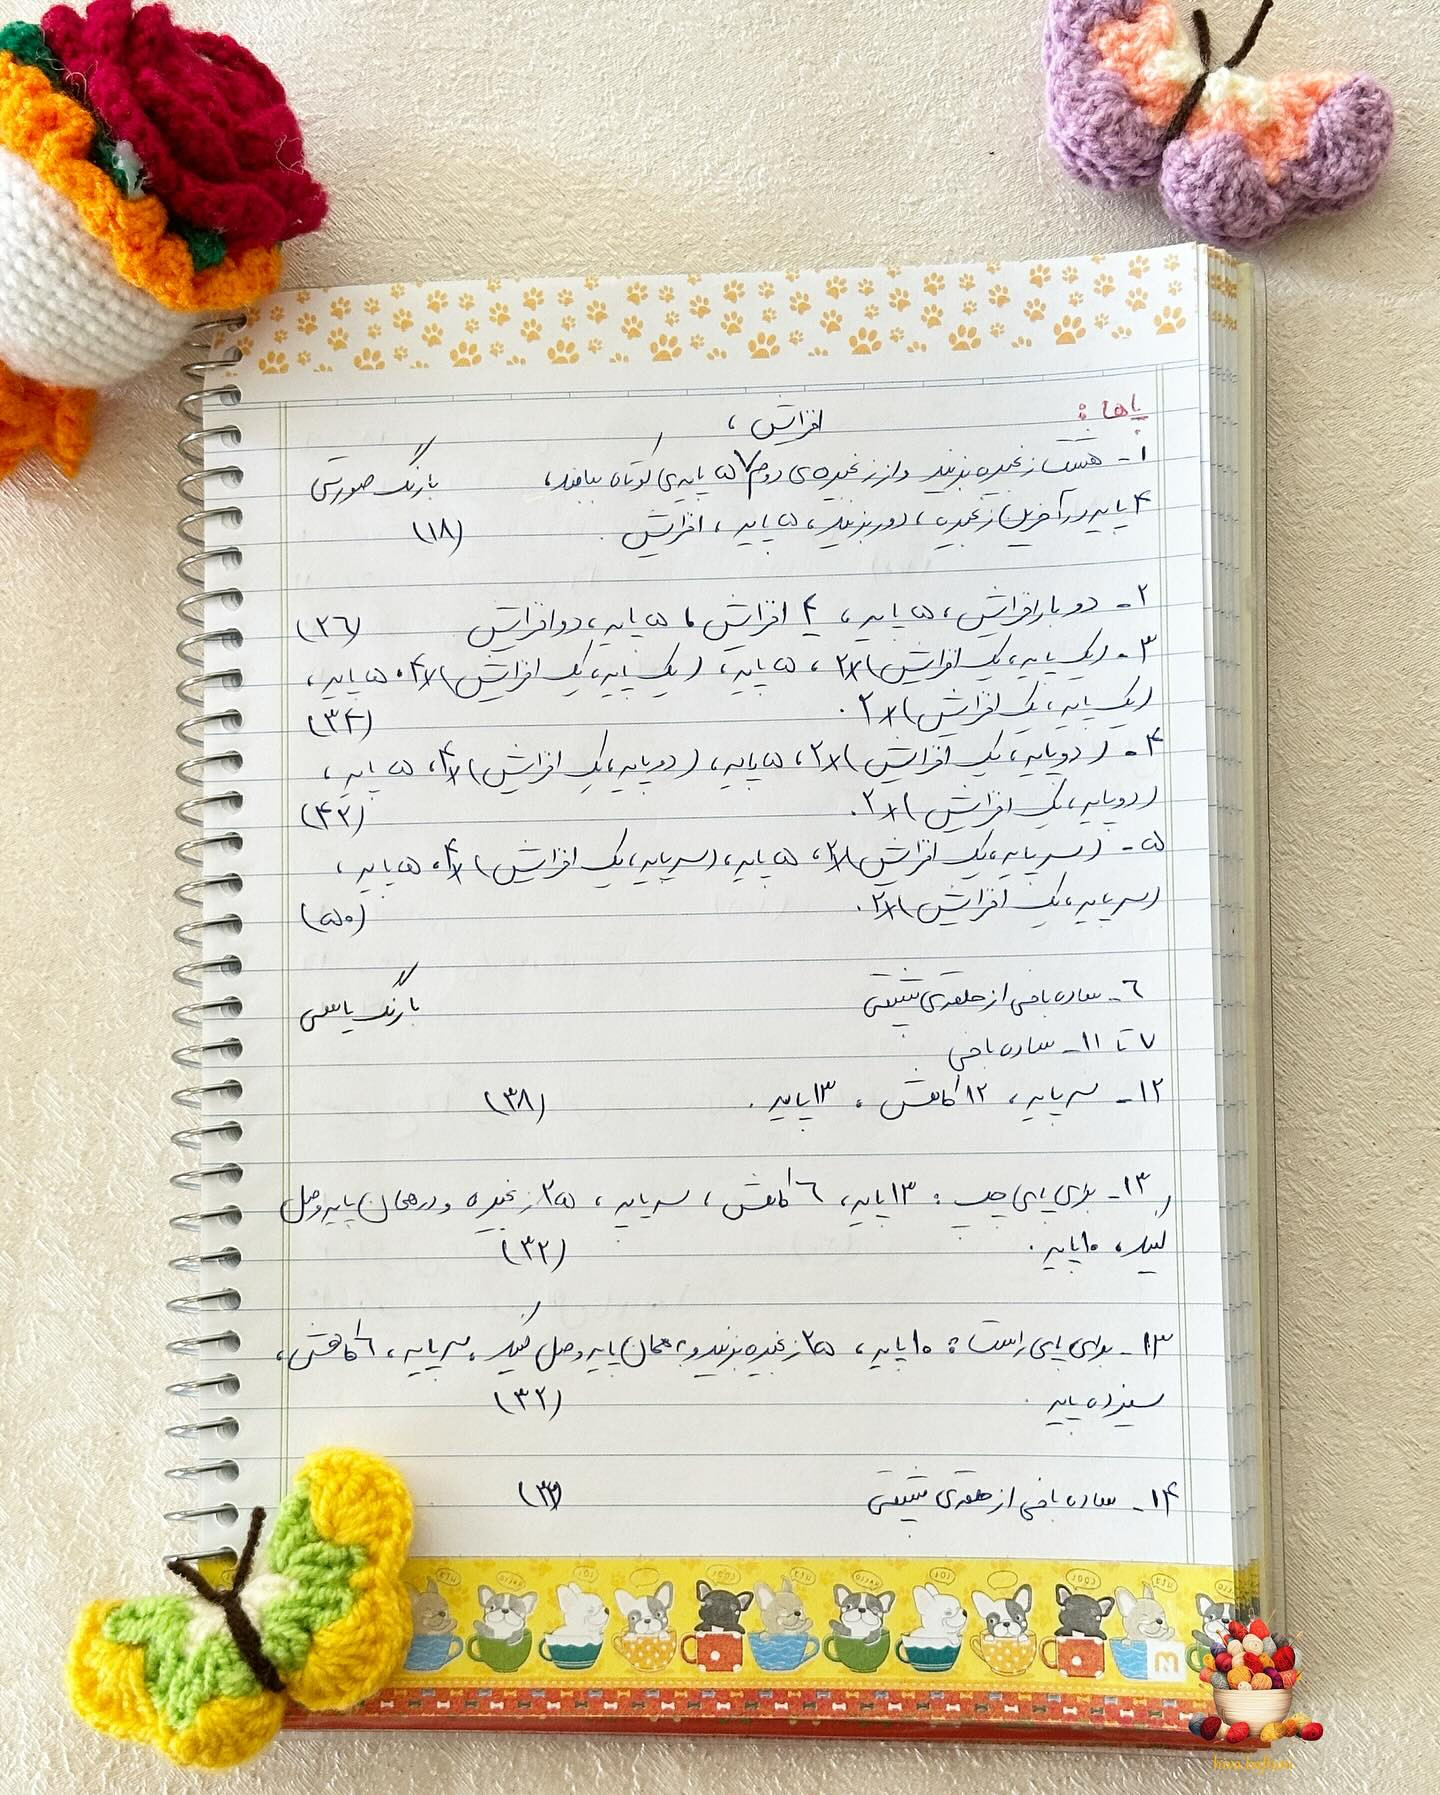 پاها :
افزایش ،
۱- هشت زنجیره بزنید و از زنجیره‌ی دوم ۵ پایه‌ی کوتاه ببافید، با رنگ صورتی
۴ پایه در آخرین زنجیره ، دور بزنید، ۵ پایه ، افزایش . (۱۸)
۲- دو بار افزایش ، ۵ پایه ، ۴ افزایش ، ۵ پایه ، دو افزایش (۲۶)
۳- (یک پایه ، یک افزایش)×۲ ، ۵ پایه ، (یک پایه ، یک افزایش)×۴، ۵ پایه ،
(یک پایه ، یک افزایش)×۲ . (۳۴)
۴- (دو پایه ، یک افزایش)×۲ ، ۵ پایه ، (دو پایه ، یک افزایش)×۴، ۵ پایه ،
(دو پایه ، یک افزایش)×۲ . (۴۲)
۵- (سه پایه ، یک افزایش)×۲ ، ۵ پایه ، (سه پایه ، یک افزایش)×۴، ۵ پایه ،
(سه پایه ، یک افزایش)×۲ . (۵۰)
۶- ساده بافی از حلقه‌ی پشتی با رنگ یاسی
۷ تا ۱۱- ساده بافی
۱۲- سه پایه ، ۱۲ کاهش ، ۱۳ پایه . (۳۸)
۱۳- برای پای چپ : ۱۳ پایه ، ۶ کاهش ، سه پایه ، ۲۵ زنجیره و در همان پایه وصل
کنید ، ۱۰ پایه . (۳۲)
۱۳- برای پای راست : ۱۰ پایه ، ۲۵ زنجیره بزنید و به همان پایه وصل کنید ، سه پایه ، ۶ کاهش ،
سیزده پایه . (۳۲)
۱۴- ساده بافی از حلقه‌ی پشتی (۳۲)